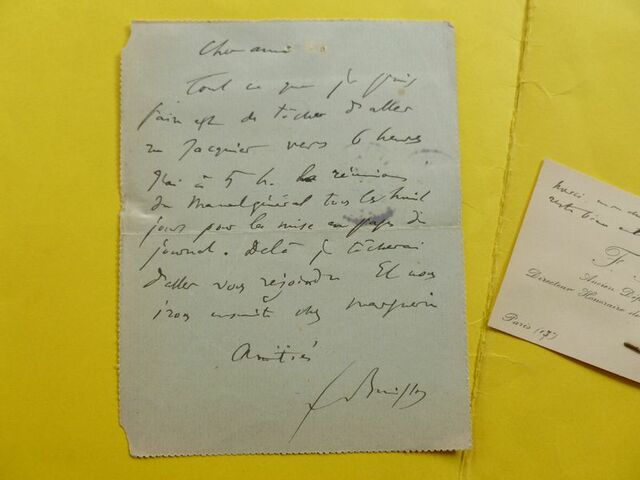 Cher ami
Tout ce que je puis
faire est de tâcher d'aller
au Jacquier vers 6 heures
J'ai à 5 h. la réunion
du Manuel général tous les huit
jours pour la mise en pages du
journal. De là je tâcherai
d'aller vous rejoindre Et nous
irons ensuite chez
Amitiés
F Buisson
merci mon
reste bien
F.
Ancien D
Directeur Honoraire de
Paris (17e)